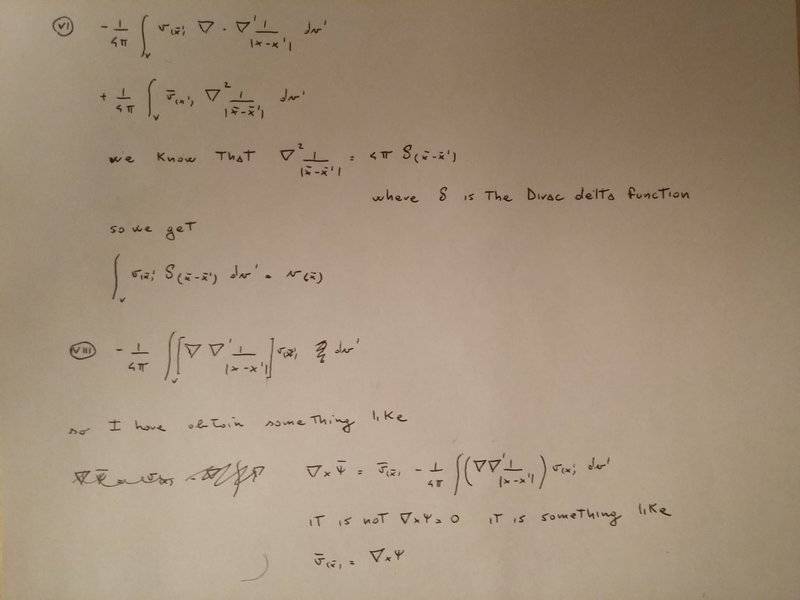 (VI) - 1/4π ∫_V v(x̄') ∇ · ∇' 1/|x-x'| dv'
+ 1/4π ∫_V v̄(x') ∇² 1/|x̄-x̄'| dv'
we know that ∇² 1/|x̄-x̄'| = 4π δ(x̄-x̄')
where δ is the Dirac delta function
so we get
∫_V v(x̄') δ(x̄-x̄') dv' = v(x̄)
(VIII) - 1/4π ∫_V [∇ ∇' 1/|x-x'|] v(x̄') dv'
so I have obtoin something like
∇ x Ψ̄ = v̄(x̄) - 1/4π ∫ (∇∇' 1/|x-x'|) v(x') dv'
it is not ∇xΨ=0 it is something like
v̄(x̄) = ∇xΨ